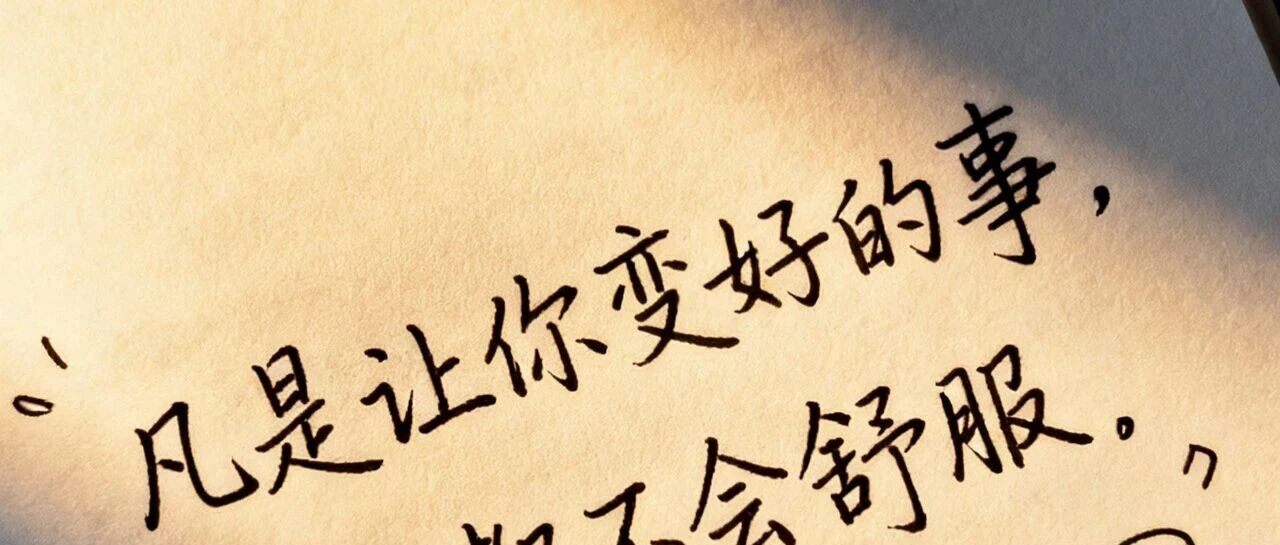 凡是让你变好的事，
都不会舒服。